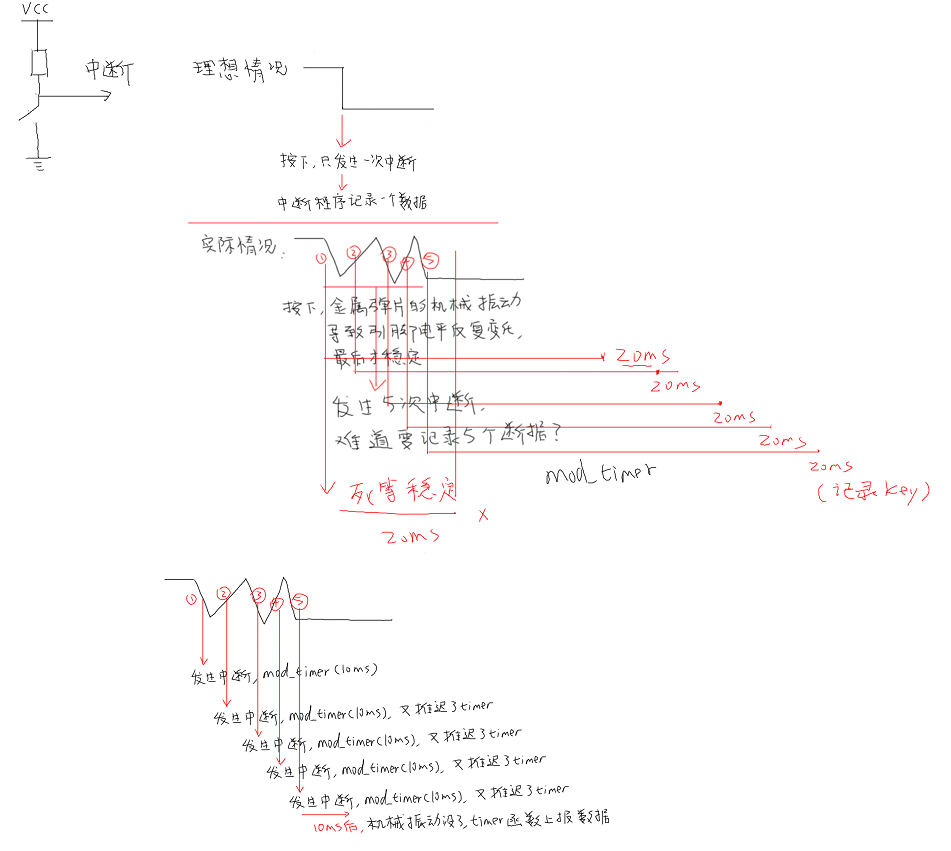 VCC
中断
理想情况
按下，只发生一次中断
中断程序记录一个数据
实际情况：
① ② ③ ④ ⑤
按下，金属弹片的机械振动
导致引脚电平反复变化，
最后才稳定
20ms
20ms
发生5次中断，
20ms
难道要记录5个断据？
20ms
mod_timer
20ms
(记录key)
死等稳定
20ms
×
① ② ③ ④ ⑤
发生中断，mod_timer(10ms)
发生中断，mod_timer(10ms)，又推迟了timer
发生中断，mod_timer(10ms)，又推迟了timer
发生中断，mod_timer(10ms)，又推迟了timer
发生中断，mod_timer(10ms)，又推迟了timer
10ms后，机械振动没了，timer函数上报数据